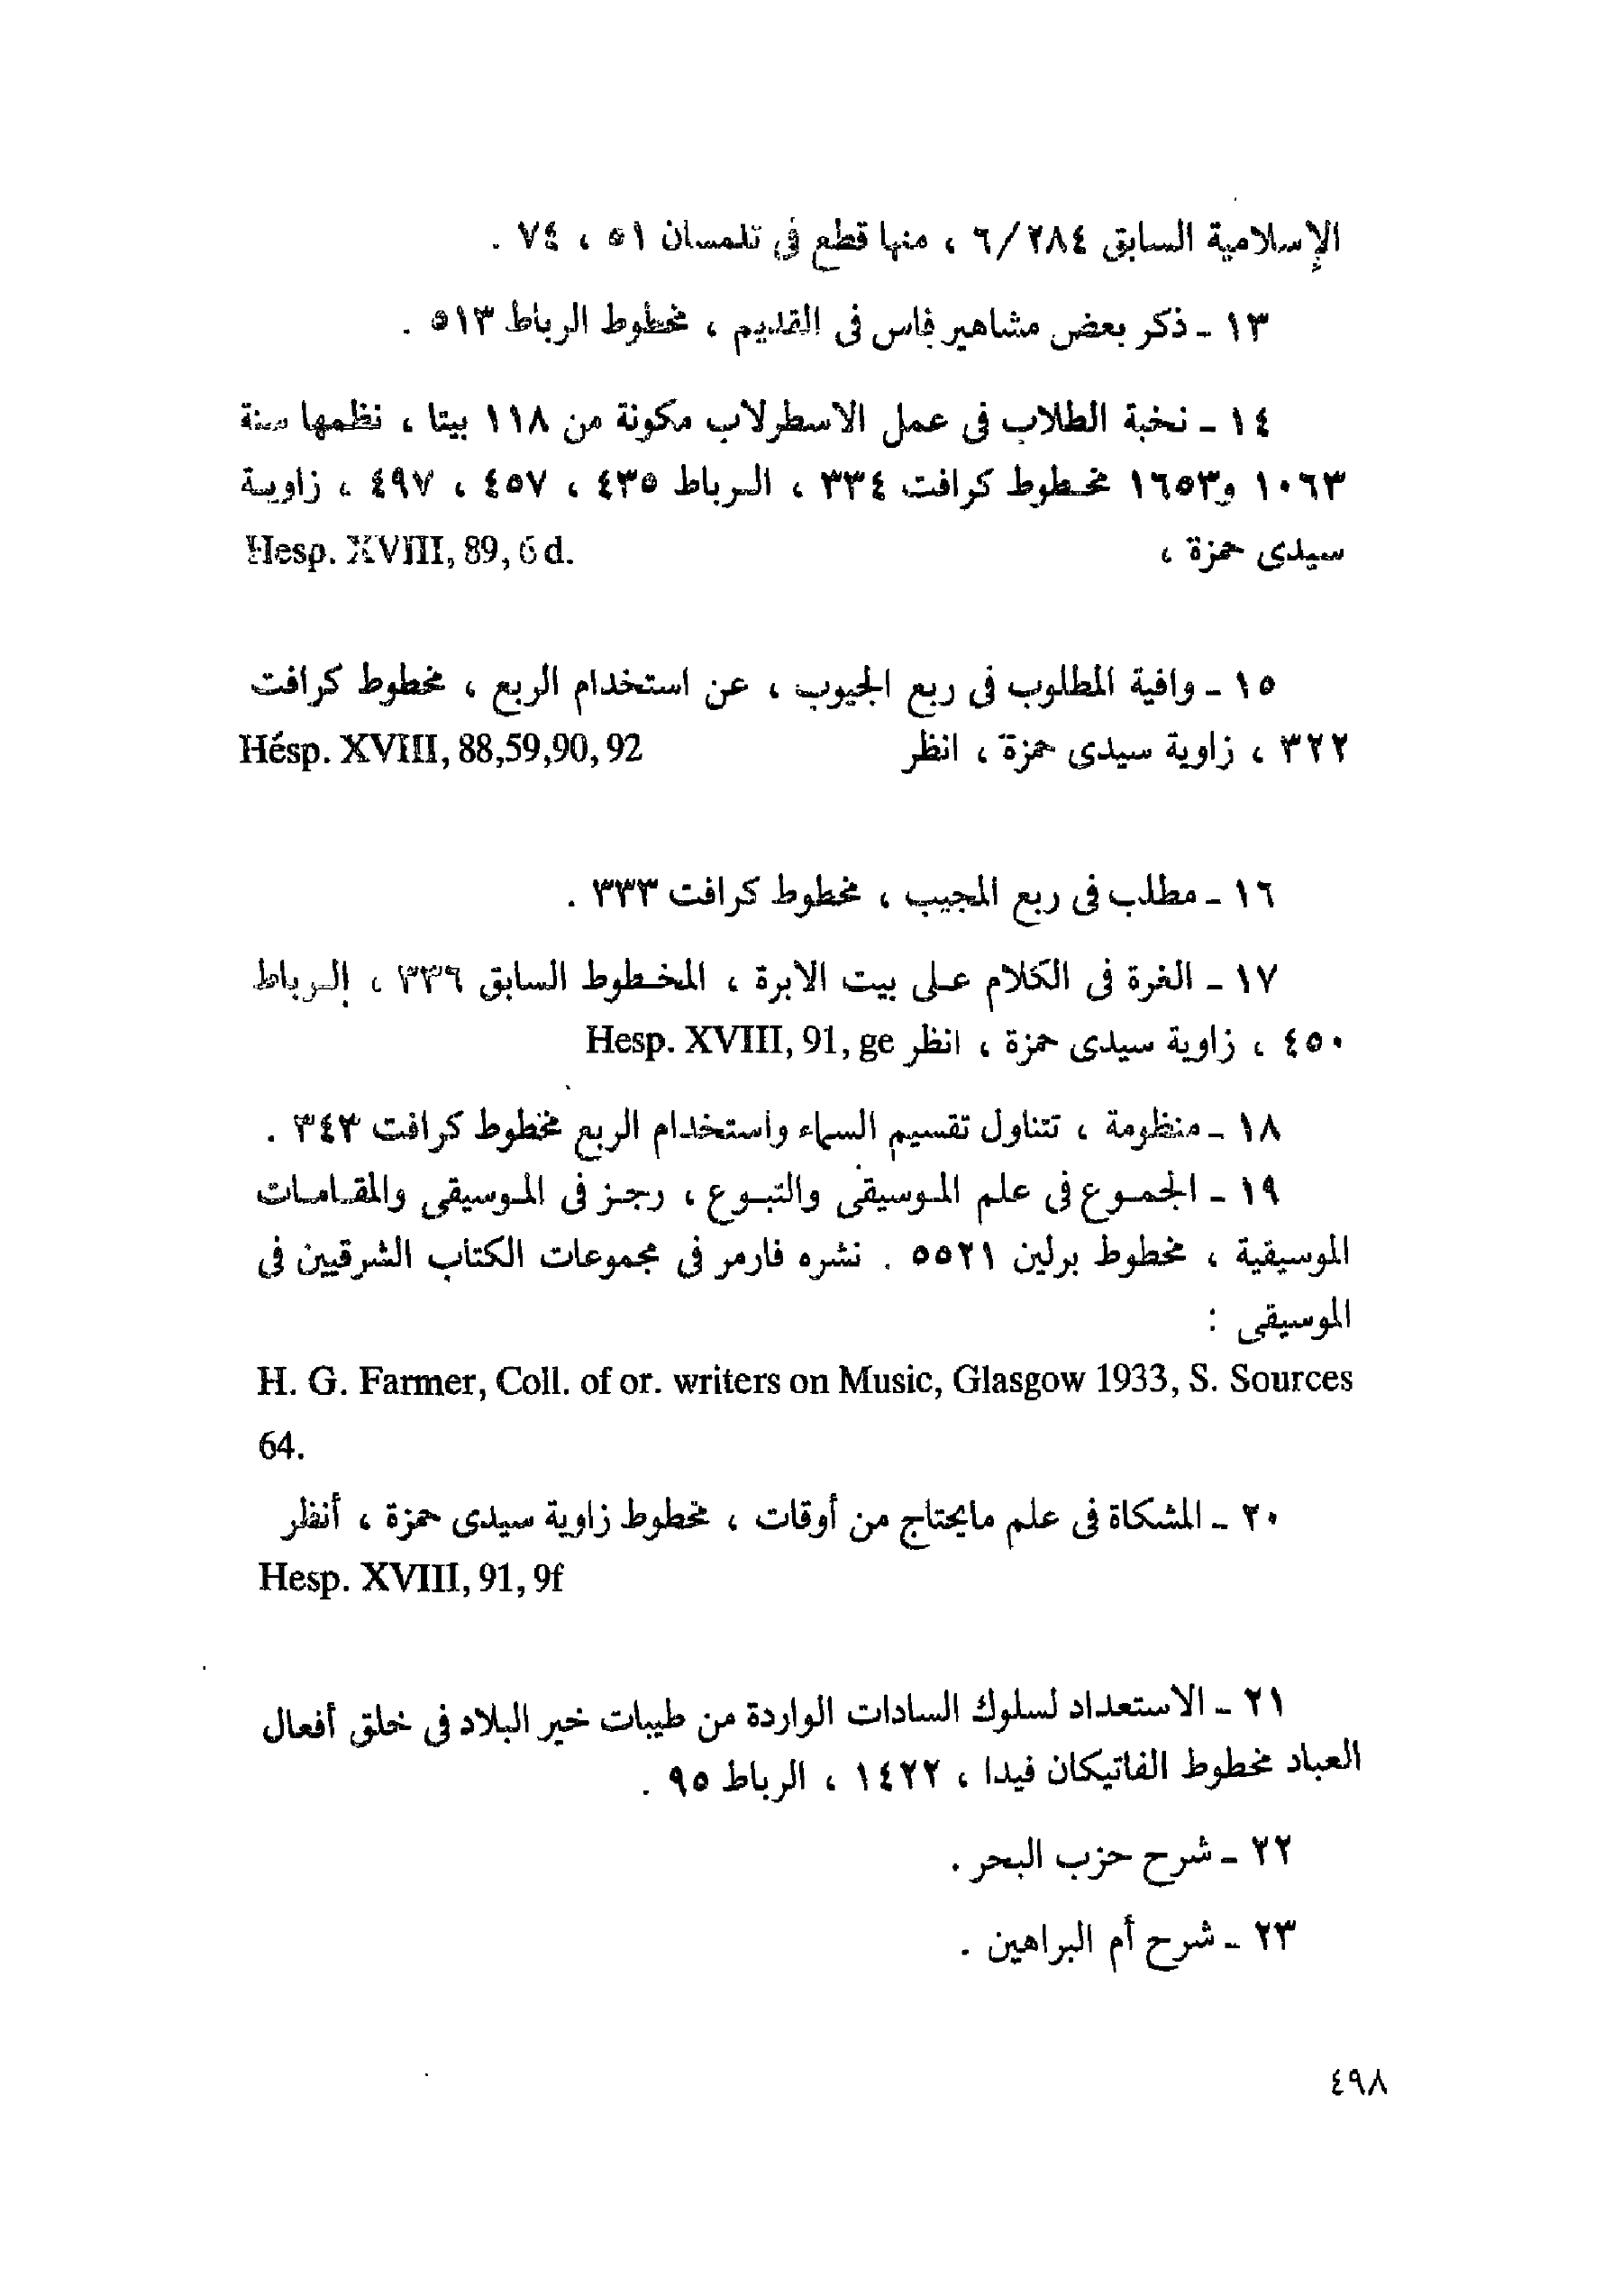 الإسلامية السابق ٦/٢٨٤ ، منها قطع فى تلمسان ٥١ ، ٧٤ .
١٣ ـ ذكر بعض مشاهير فاس فى القديم ، مخطوط الرباط ٥١٣ .
١٤ ـ نخبة الطلاب فى عمل الاسطرلاب مكونة من ١١٨ بيتا ، نظمها سنة
١٠٦٣ و١٦٥٣ مخطوط كرافت ٣٣٤ ، الرباط ٤٣٥ ، ٤٥٧ ، ٤٩٧ ، زاوية
سيدى حمزة ، Hesp. XVIII, 89, 6 d.
١٥ ـ وافية المطلوب فى ربع الجيوب ، عن استخدام الربع ، مخطوط كرافت
٣٢٢ ، زاوية سيدى حمزة ، انظر Hésp. XVIII, 88,59,90, 92
١٦ ـ مطلب فى ربع المجيب ، مخطوط كرافت ٣٣٣ .
١٧ ـ الغرة فى الكلام على بيت الابرة ، المخطوط السابق ٣٣٦ ، الرباط
٤٥٠ ، زاوية سيدى حمزة ، انظر Hesp. XVIII, 91, ge
١٨ ـ منظومة ، تتناول تقسيم السماء واستخدام الربع مخطوط كرافت ٣٤٣ .
١٩ ـ الجموع فى علم الموسيقى والتبوع ، رجز فى الموسيقى والمقامات
الموسيقية ، مخطوط برلين ٥٥٢١ . نشره فارمر فى مجموعات الكتاب الشرقيين فى
الموسيقى :
H. G. Farmer, Coll. of or. writers on Music, Glasgow 1933, S. Sources
64.
٢٠ ـ المشكاة فى علم مايحتاج من أوقات ، مخطوط زاوية سيدى حمزة ، أنظر
Hesp. XVIII, 91, 9f
٢١ ـ الاستعداد لسلوك السادات الواردة من طيبات خير البلاد فى خلق أفعال
العباد مخطوط الفاتيكان فيدا ، ١٤٢٢ ، الرباط ٩٥ .
٢٢ ـ شرح حزب البحر .
٢٣ ـ شرح أم البراهين .
٤٩٨